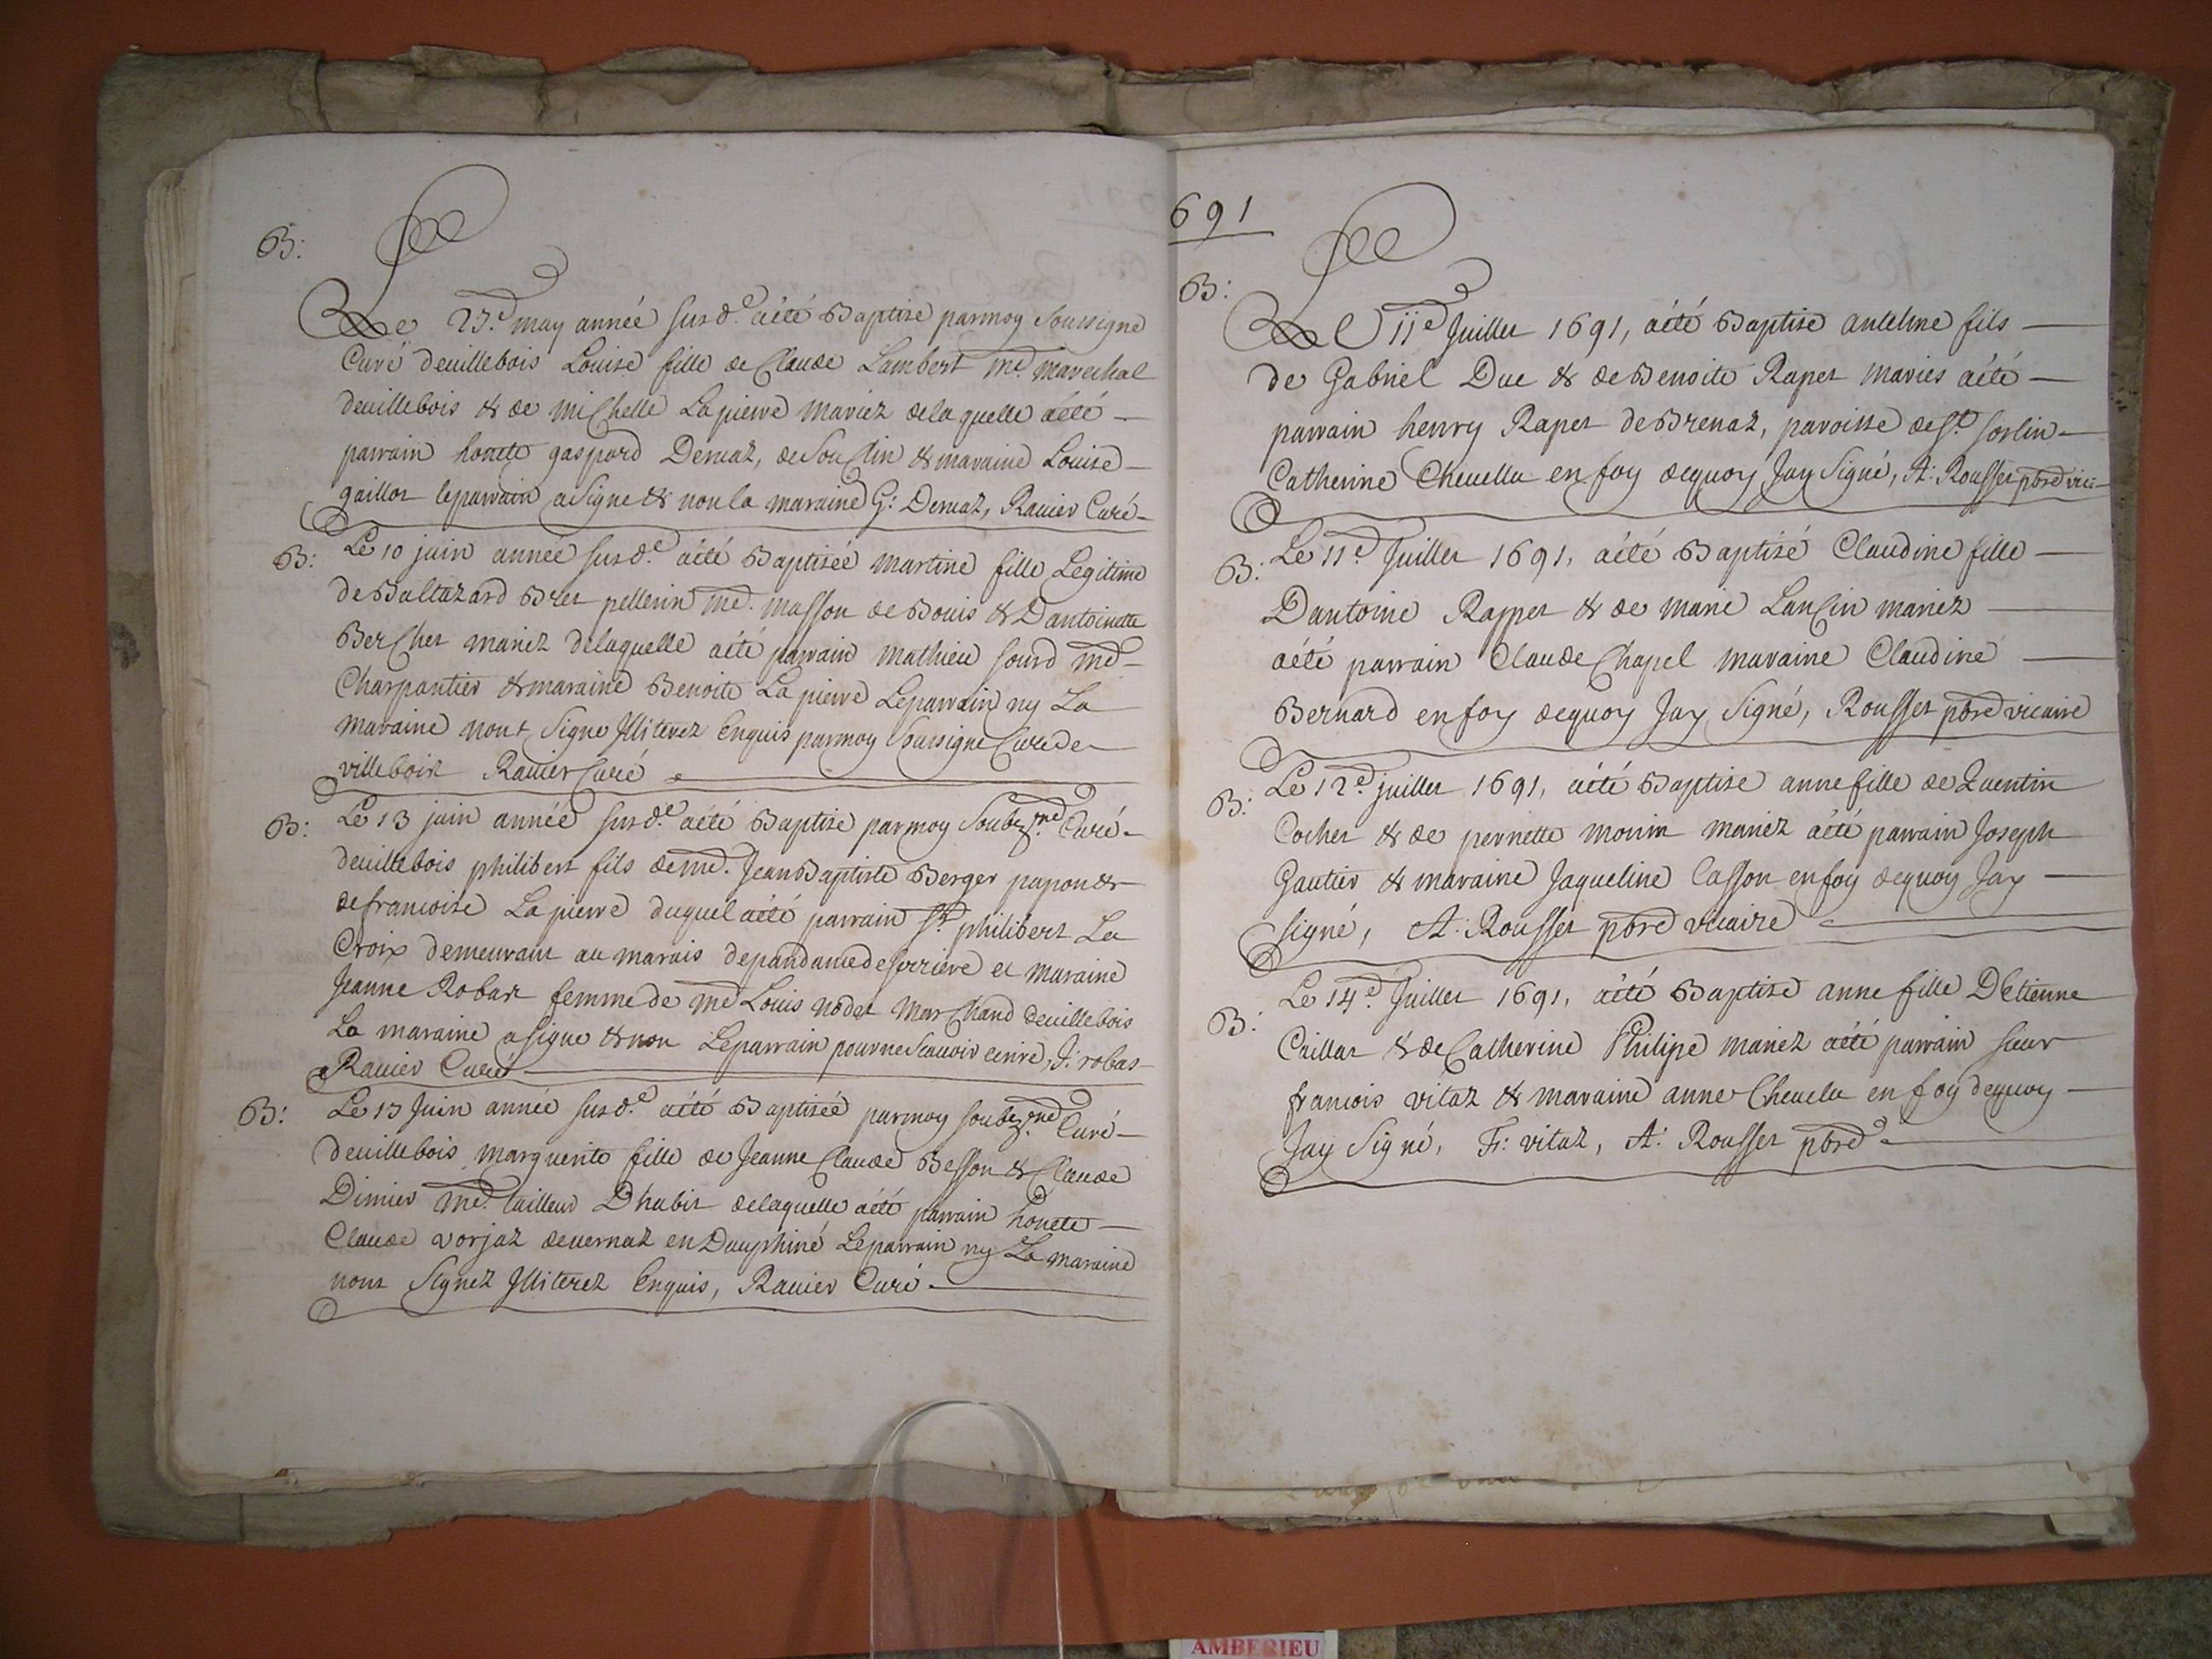 B:
Le 27.e may année susd.e aété Baptise parmoy Soussigne
Curé deuillebois Louise fille de Claude Lambert me. marechal
deuillebois & de miChelle Lapierre mariez delaquelle aété
parrain honete gaspard Dernaz, de SouClin & maraine Louise
gaillot leparrain asigne & non la maraine G: Dernaz, Rauier Curé
B: Le 10 juin année susd.e aété Baptisée martine fille Legitime
de Baltazard Bret pellerin me. masson de Bouis & Dantoinette
BerChet mariez delaquelle aété parrain mathieu sourd me
Charpantier & maraine Benoite Lapierre Leparrain ny La
maraine nont Signe Jlliterez Enquis parmoy Soussigne Curé de
villebois Rauier Curé
B: Le 13 juin année susd.e aété Baptise parmoy Soubzne. Curé
deuillebois philibert fils deme. Jean Baptiste Berger papon &
defrancoise Lapierre duquel aété parrain sr. philibert La
Croix demeurant au marais dependance de serriere et maraine
Jeanne Robat femme de me Louis nodet MarChand deuillebois
La maraine asigne & non Leparrain pourne Scauoir ecrire, J: robat
Rauier Curé
B: Le 13 Juin année susd.e aété Baptisée parmoy soubzne. Curé
deuillebois marguerite fille de Jeanne Claude Besson & Claude
Dimier me. tailleur Dhabit delaquelle aété parrain honete
Claude vorjaz deuernaz en Dauphiné Leparrain ny La maraine
nont Signez Jlliterez Enquis, Rauier Curé
691
B:
Le 11e Juillet 1691, aété Baptise antelme fils
de Gabriel Duc & de Benoite Rapet maries aété
parrain henry Rapet de Brenaz, paroisse de St. sorlin
Catherine Cheuellu en foy dequoy Jay Signé, A: Rousset pbre vic
B: Le 11e. Juillet 1691, aété Baptisé Claudine fille
Dantoine Rappet & de marie LanCin mariez
aété parrain Claude Chapel maraine Claudine
Bernard en foy dequoy Jay Signé, Rousset pbre vicaire
B: Le 12e. juillet 1691, aété Baptise anne fille de Quentin
Cochet & de pernette morin mariez aété parrain Joseph
Gautier & maraine Jaqueline Casson en foy dequoy Jay
signé, A: Rousset pbre vicaire
B: Le 14e. Juillet 1691, aété Baptise anne fille DEtienne
Caillat & de Catherine Philipe mariez aété parrain sieur
francois vitaz & maraine anne Cheuelu en foy dequoy
Jay Signé, Fr: vitaz, A: Rousset pbre
AMBERIEU